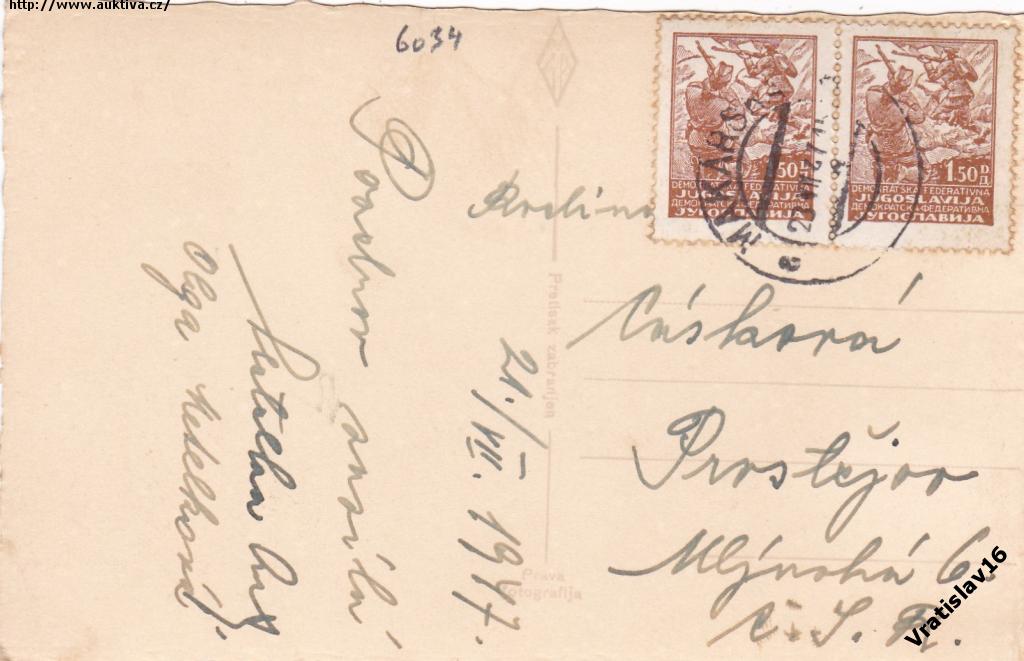 http://www.auktiva.cz/
6034
Pozdrav
Olga Nedělková
21./VII. 1947.
Pretisak zabranjen
Prava
fotografija
MAKARSKA
1.50 D
Д
DEMOKRATSKA FEDERATIVNA
JUGOSLAVIJA
ДЕМОКРАТСКА ФЕДЕРАТИВНА
ЈУГОСЛАВИЈА
1.50 D
Д
DEMOKRATSKA FEDERATIVNA
JUGOSLAVIJA
ДЕМОКРАТСКА ФЕДЕРАТИВНА
ЈУГОСЛАВИЈА
Cásková
Prostějov
Mlýnská 6
Č.S.R.
Vratislav16